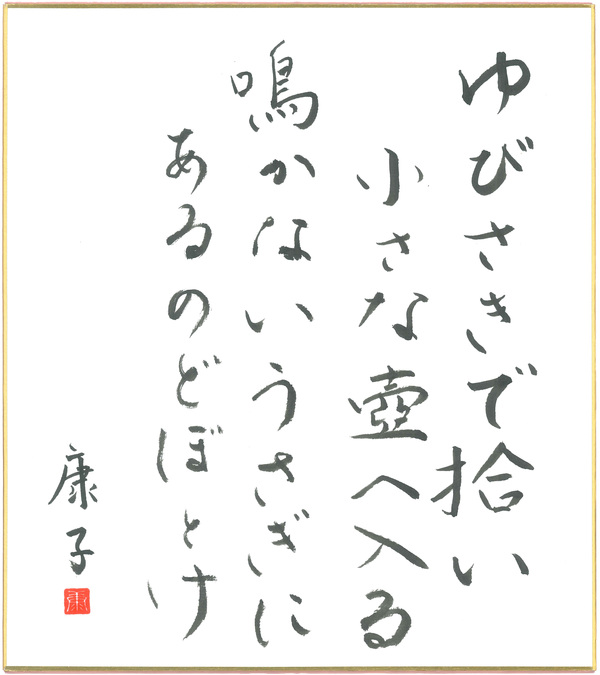 ゆびさきで拾い
小さな壺へ入る
鳴かないうさぎに
あるのどぼとけ
康子
康